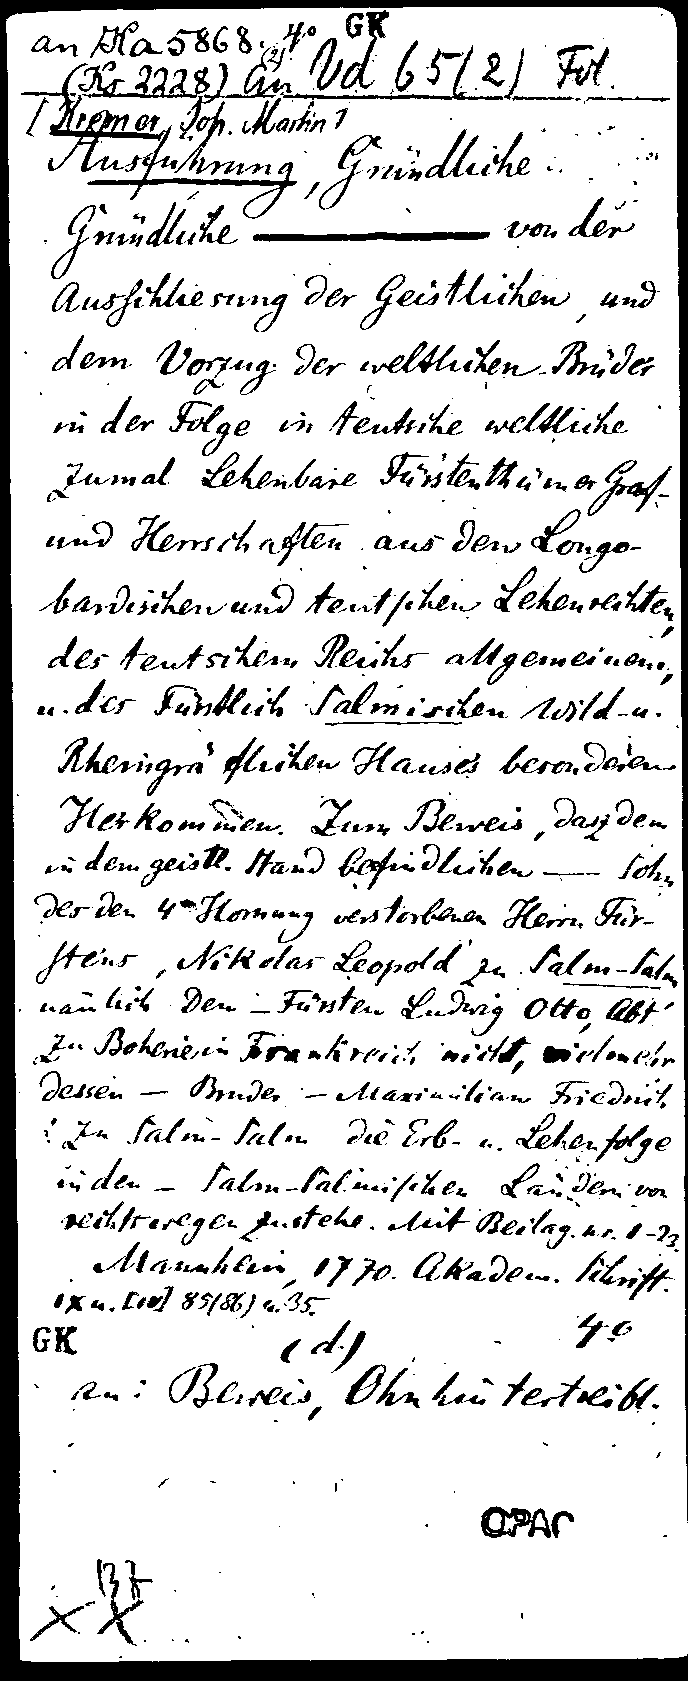 an Ha 5868. 4° GK
(Ks 2228) an Vd 65(2) Fol.
[Kremer, Joh. Martin]
Ausführung, Gründliche
Gründliche ——— von der
Ausschliesung der Geistlichen, und
dem Vorzug der weltlichen Brüder
in der Folge in teutsche weltliche
zumal Lehenbare Fürstenthümer Graf-
und Herrschaften aus den Longo-
bardischen und teutschen Lehenrechten,
des teutschen Reichs allgemeinem,
u. des Fürstlich Salmischen Wild- u.
Rheingräflichen Hauses besonderem
Herkommen. Zum Beweis, dasz dem
in dem geistl. Stand befindlichen — Sohn
des den 4ten Hornung verstorbenen Herrn Für-
stens, Nikolas Leopold zu Salm-Salm
nämlich dem — Fürsten Ludwig Otto, Abt
zu Boherie in Frankreich nicht, vielmehr
dessen — Bruder — Maximilian Friedrich
zu Salm-Salm die Erb- u. Lehenfolge
in den — Salm-Salmischen Ländern von
rechtswegen zustehe. Mit Beilag. nr. 1-23.
Mannheim, 1770. Akadem. Schrift.
IX u. [10] 85(86) u. 35.
4°
GK (d.)
an: Beweis, Ohnhintertreibl.
OPAC
BZ